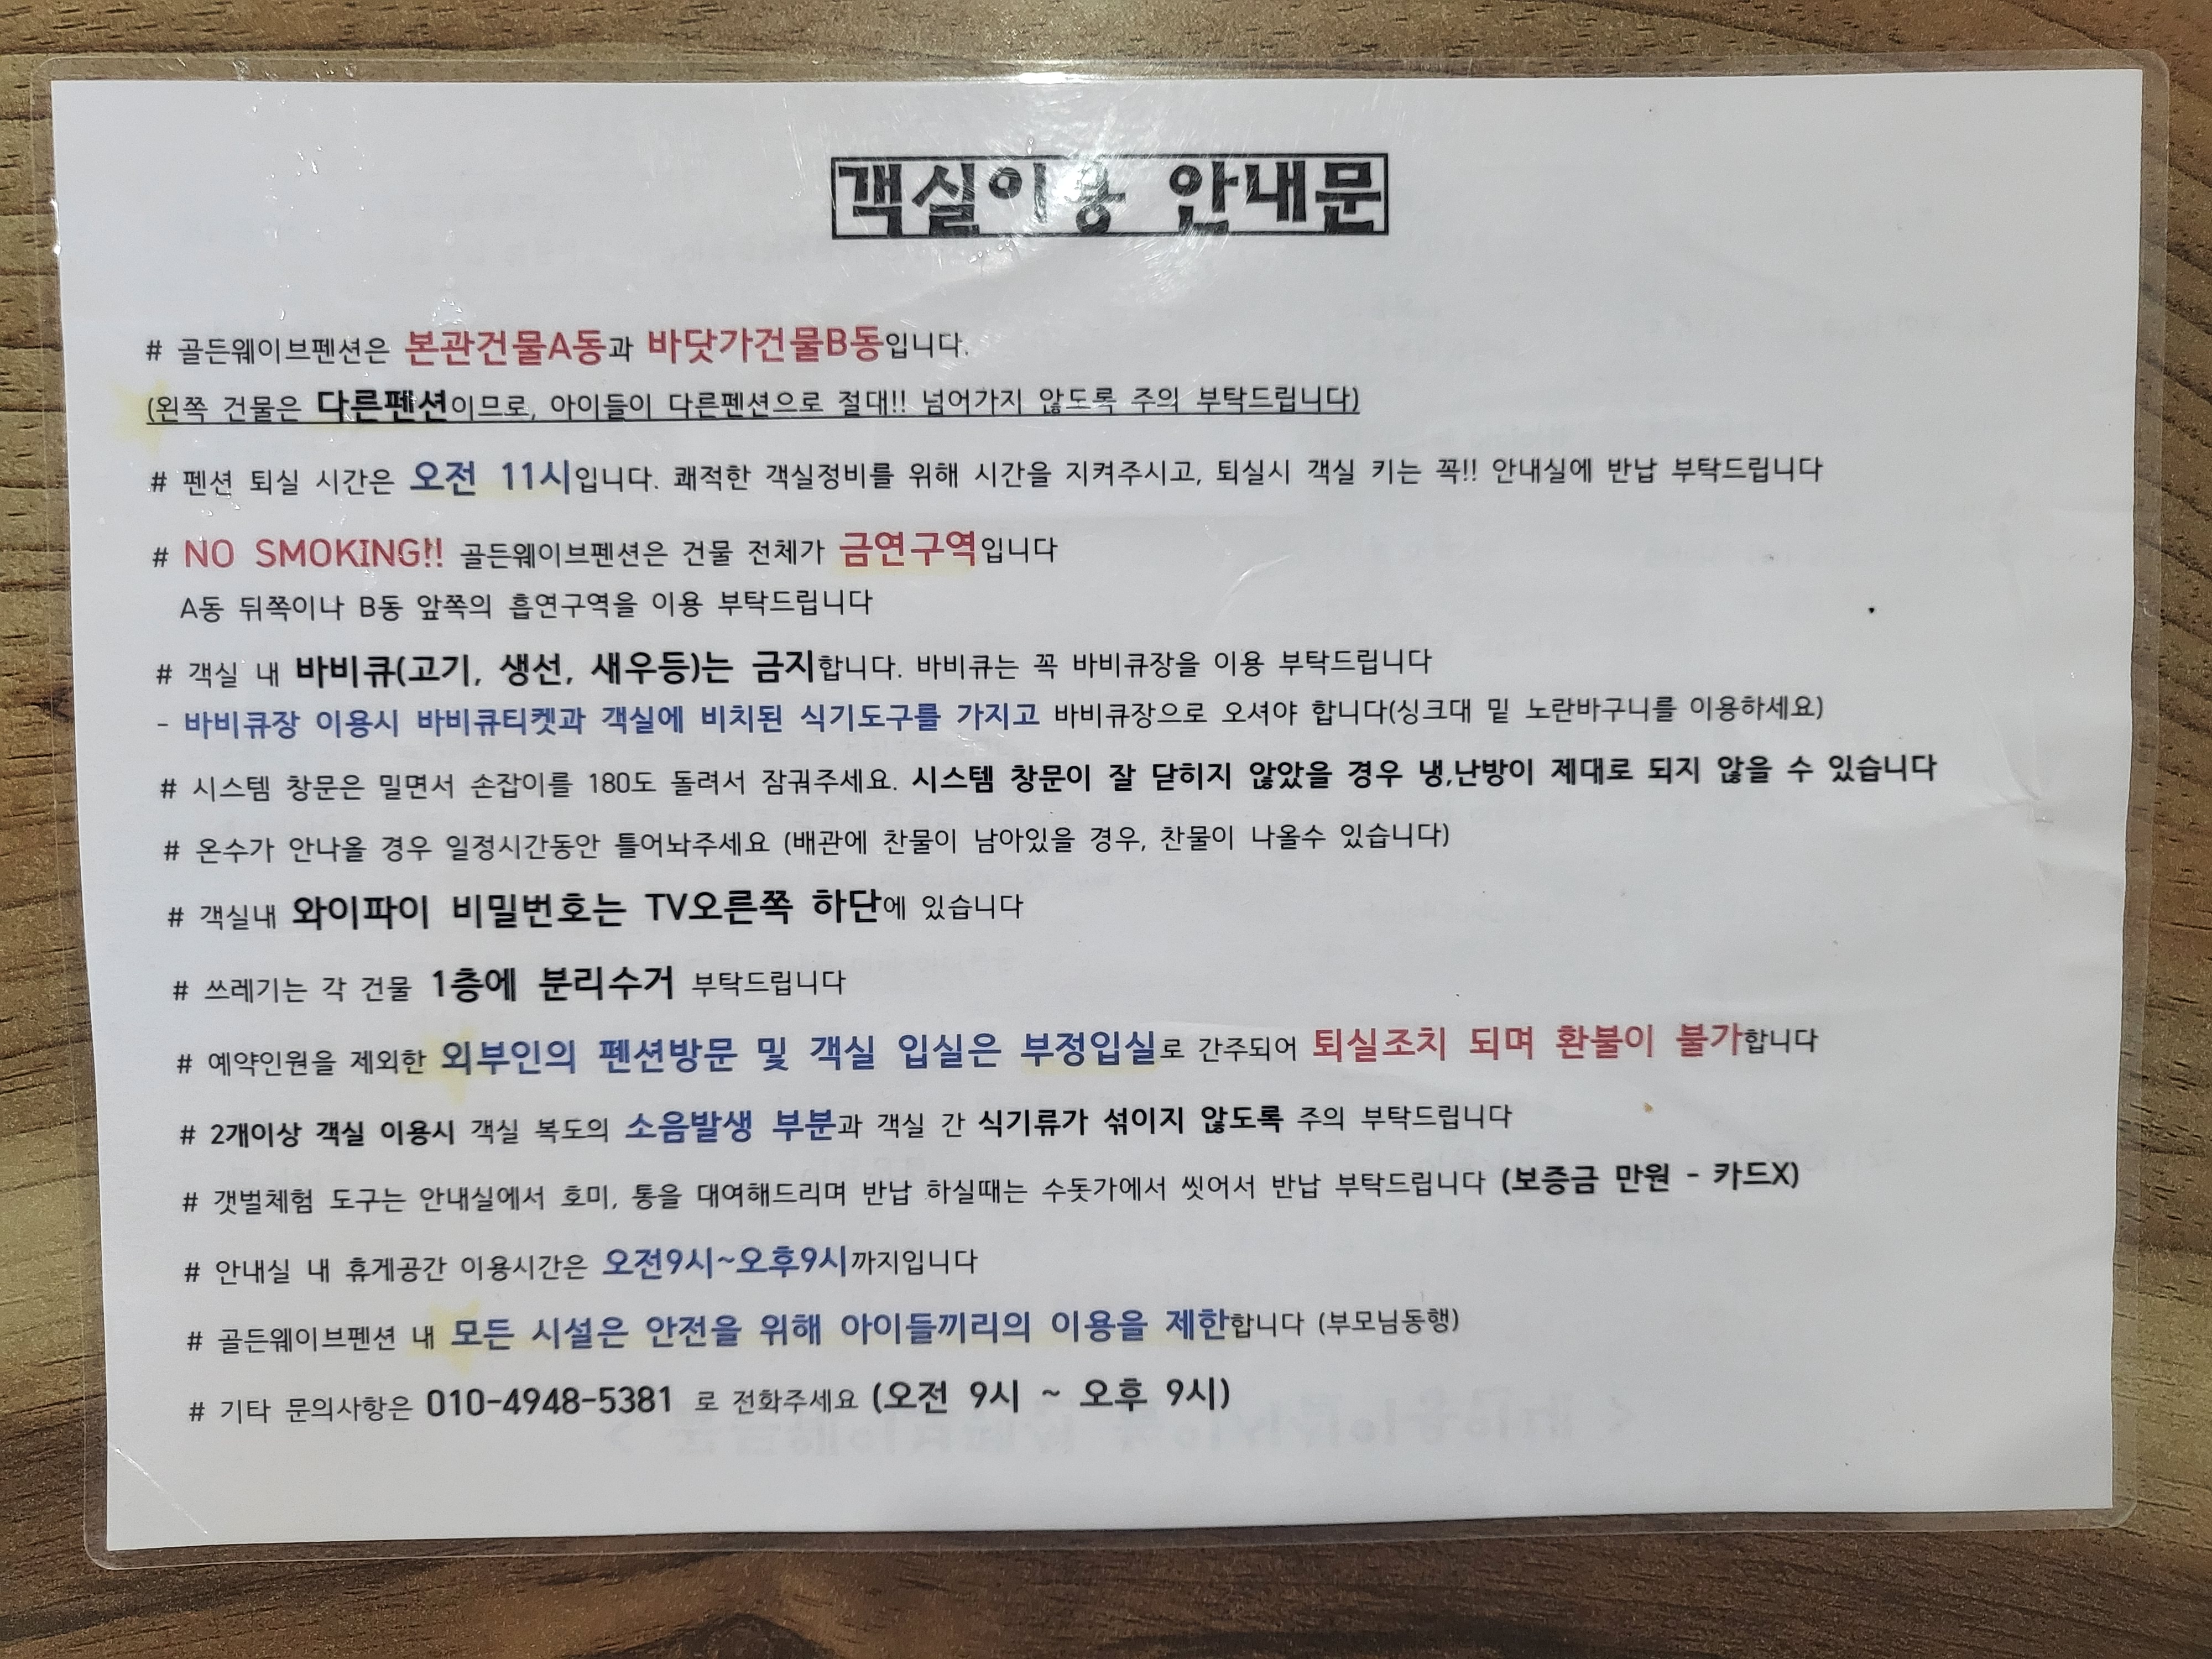 객실이용 안내문
# 골든웨이브펜션은 본관건물A동과 바닷가건물B동입니다.
(왼쪽 건물은 다른펜션이므로, 아이들이 다른펜션으로 절대!! 넘어가지 않도록 주의 부탁드립니다)
# 펜션 퇴실 시간은 오전 11시입니다. 쾌적한 객실정비를 위해 시간을 지켜주시고, 퇴실시 객실 키는 꼭!! 안내실에 반납 부탁드립니다
# NO SMOKING!! 골든웨이브펜션은 건물 전체가 금연구역입니다
A동 뒤쪽이나 B동 앞쪽의 흡연구역을 이용 부탁드립니다
# 객실 내 바비큐(고기, 생선, 새우등)는 금지합니다. 바비큐는 꼭 바비큐장을 이용 부탁드립니다
- 바비큐장 이용시 바비큐티켓과 객실에 비치된 식기도구를 가지고 바비큐장으로 오셔야 합니다(싱크대 밑 노란바구니를 이용하세요)
# 시스템 창문은 밀면서 손잡이를 180도 돌려서 잠궈주세요. 시스템 창문이 잘 닫히지 않았을 경우 냉,난방이 제대로 되지 않을 수 있습니다
# 온수가 안나올 경우 일정시간동안 틀어놔주세요 (배관에 찬물이 남아있을 경우, 찬물이 나올수 있습니다)
# 객실내 와이파이 비밀번호는 TV오른쪽 하단에 있습니다
# 쓰레기는 각 건물 1층에 분리수거 부탁드립니다
# 예약인원을 제외한 외부인의 펜션방문 및 객실 입실은 부정입실로 간주되어 퇴실조치 되며 환불이 불가합니다
# 2개이상 객실 이용시 객실 복도의 소음발생 부분과 객실 간 식기류가 섞이지 않도록 주의 부탁드립니다
# 갯벌체험 도구는 안내실에서 호미, 통을 대여해드리며 반납 하실때는 수돗가에서 씻어서 반납 부탁드립니다 (보증금 만원 - 카드X)
# 안내실 내 휴게공간 이용시간은 오전9시~오후9시까지입니다
# 골든웨이브펜션 내 모든 시설은 안전을 위해 아이들끼리의 이용을 제한합니다 (부모님동행)
# 기타 문의사항은 010-4948-5381 로 전화주세요 (오전 9시 ~ 오후 9시)